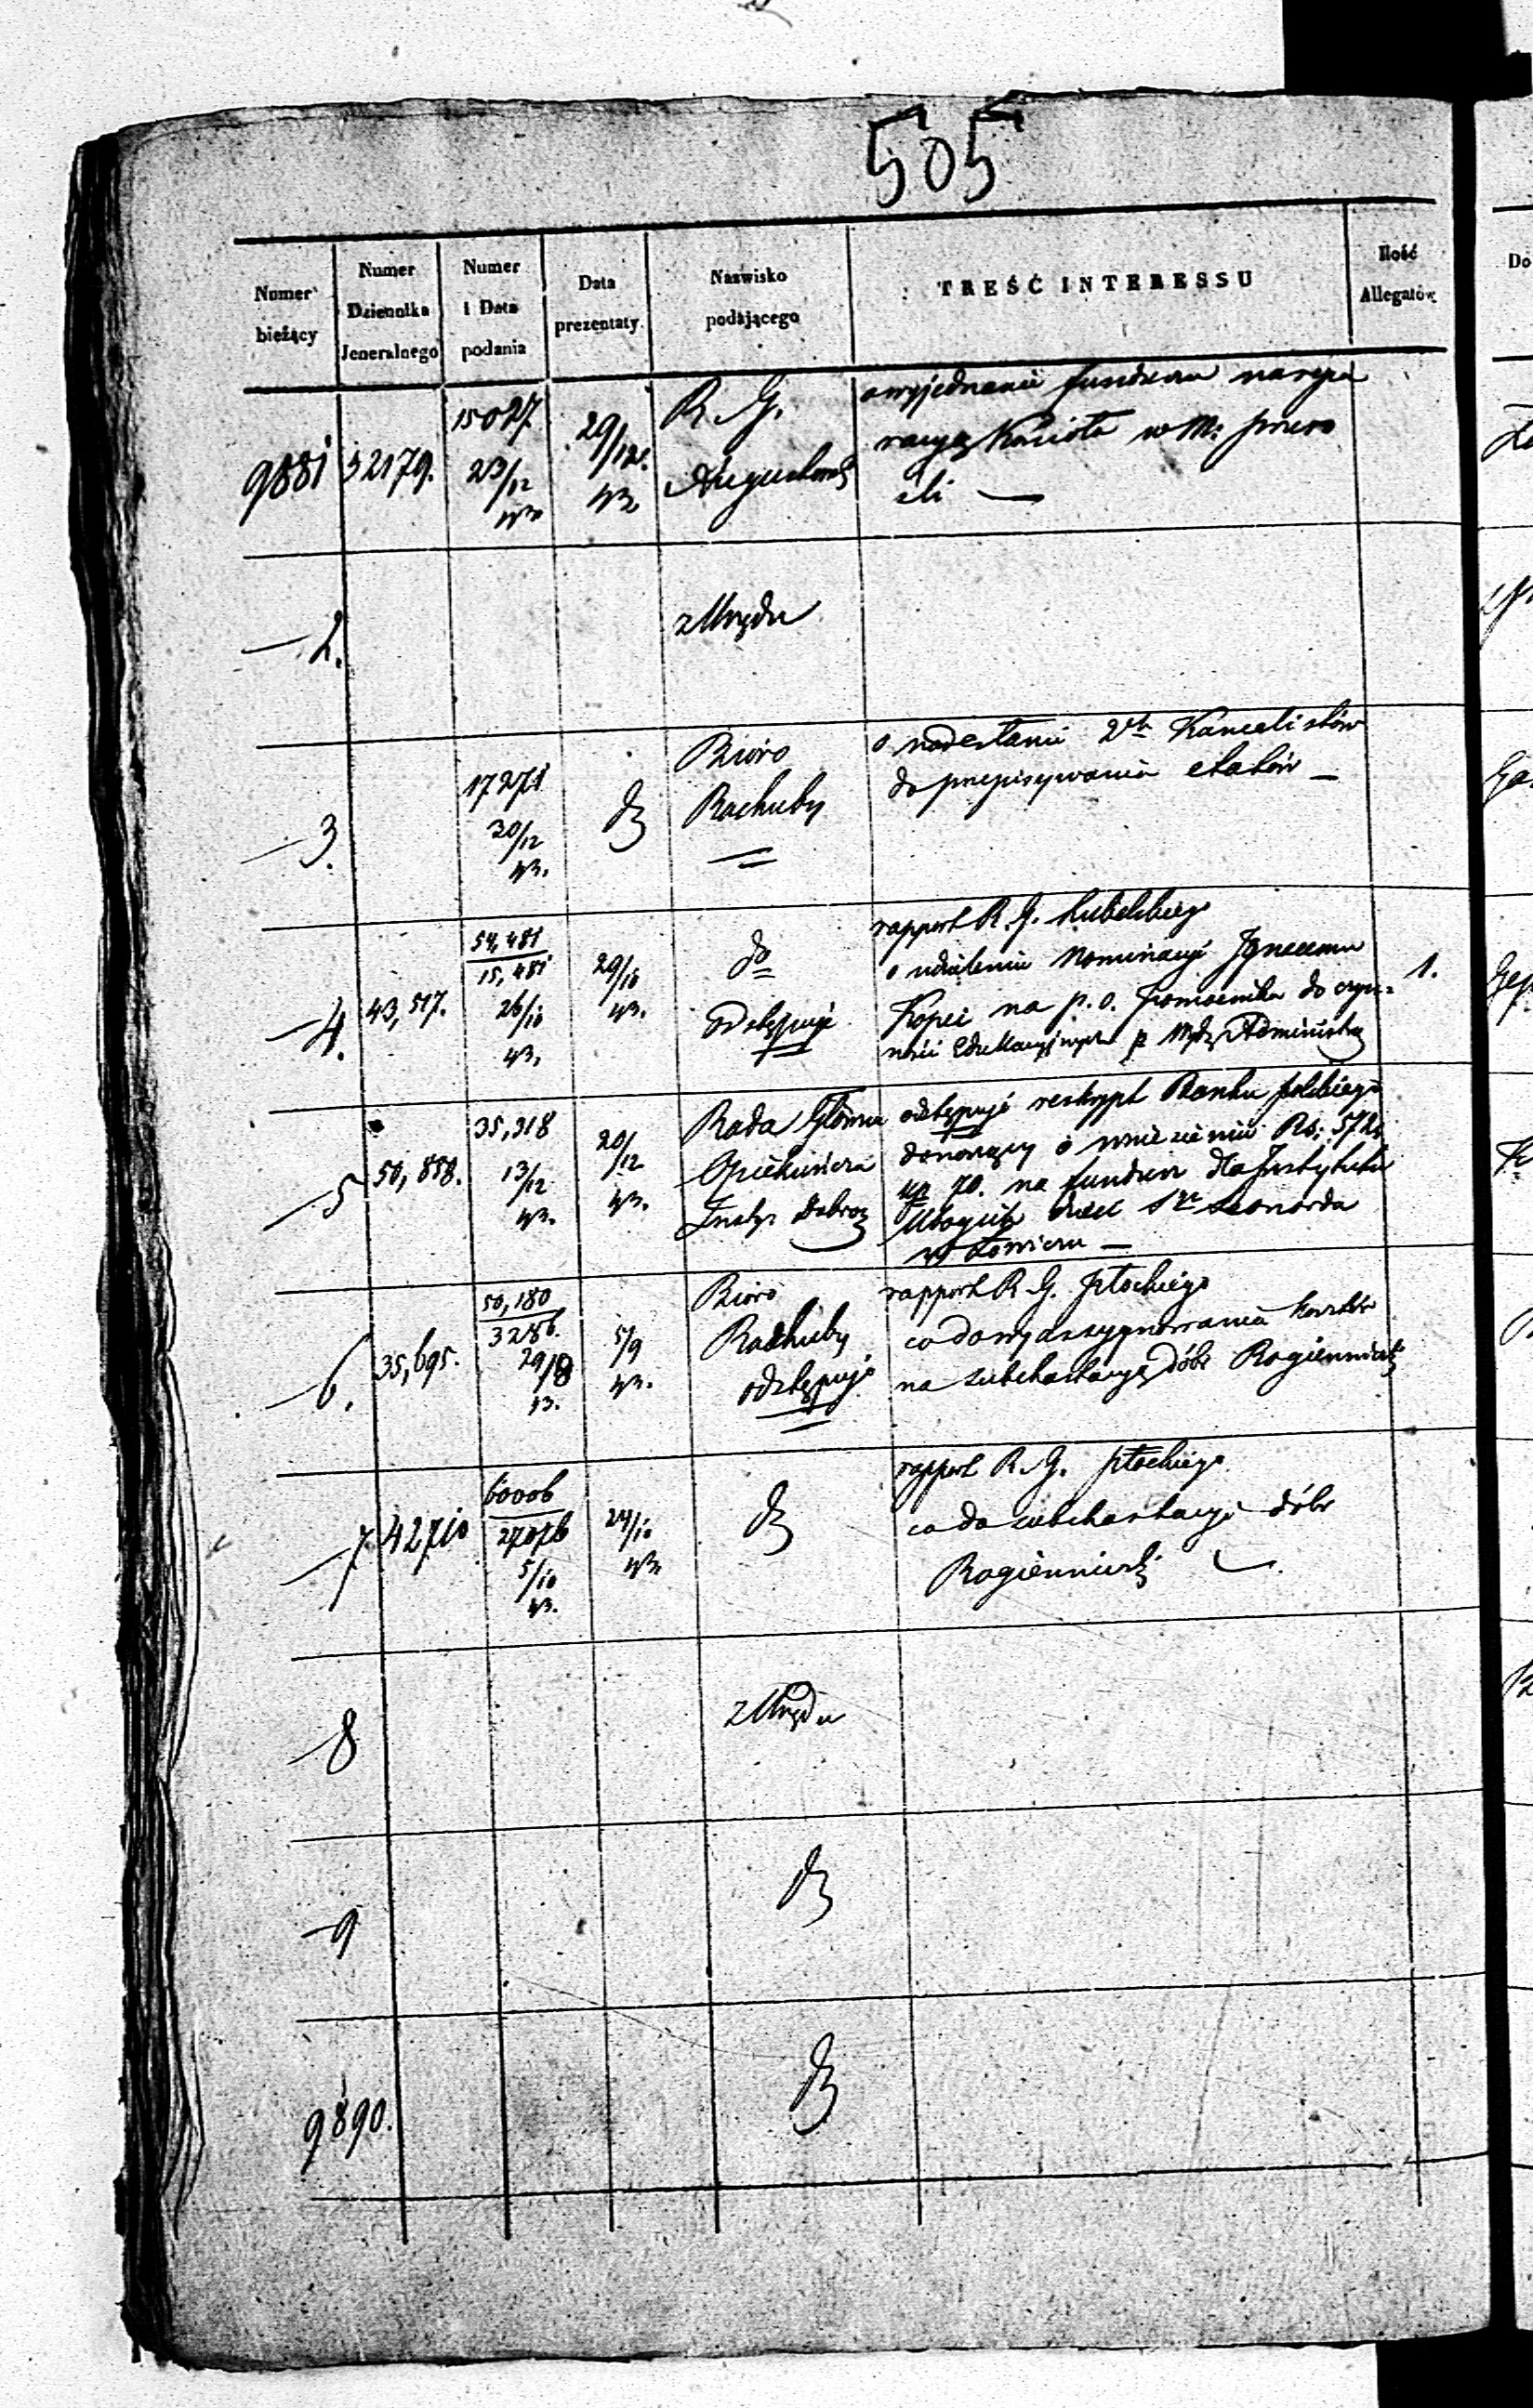 505
Numer bieżący
Numer Dziennika Jeneralnego
Numer i Data podania
Data prezentaty.
Nazwisko podającego
TREŚĆ INTERESSU
Ilość Allegatów
9881
52179.
15027.
23/12
43.
29/12.
43.
R. G.
Augustows
o wyjednanie funduszu na repa
racyę Kościoła w M:
— 2.
z Urzędu
— 3.
17271
20/12
43.
do
Bióro
Rachuby
o nadesłanie 2ch Kancelistów
do przepisywania etatów —
— 4.
43,517.
54,481
15,481
26/10
43.
29/10
43.
do
odstępuje
rapport R. G. Lubelskiego
o udzielenie Nominacyi Ignacemu
Kopeć na p. o. Pomocnika do czyn-
ności p Administ
1.
— 5
50,858.
35,318
13/12
43.
20/12
43.
Rada Główna
Opiekuńcza
Instyt Dobrocz
odstępuje reskrypt Banku polskiego
donoszący o wniesieniu Rs: 572.
kp 70. na fundusz dla Instytutu
Ubogich dzieci Leonarda
w Łowiczu —
— 6.
35,695.
50,180
3286.
29/8
43.
5/9
43.
Bióro
Rachuby
odstępuje
rapport R. G. Płockiego
co do wyassygnowania kosztów
na subhastacyę dóbr
— 7
42710
60006
27076
5/10
43.
24/10
43.
do
rapport R. G. Płockiego
co do subhastacyi dóbr
— 8
z Urzędu
— 9
do
9890.
do